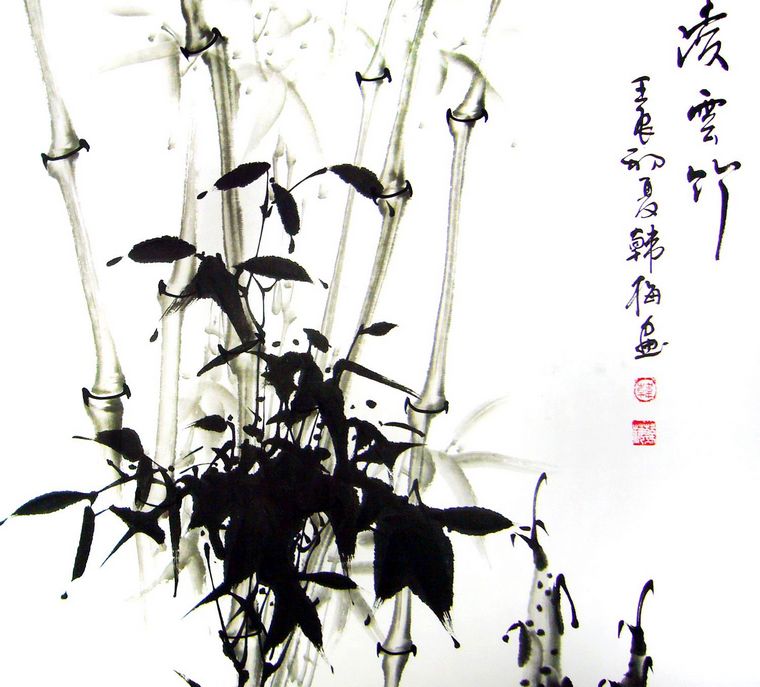 凌雲竹
壬辰初夏韩梅画